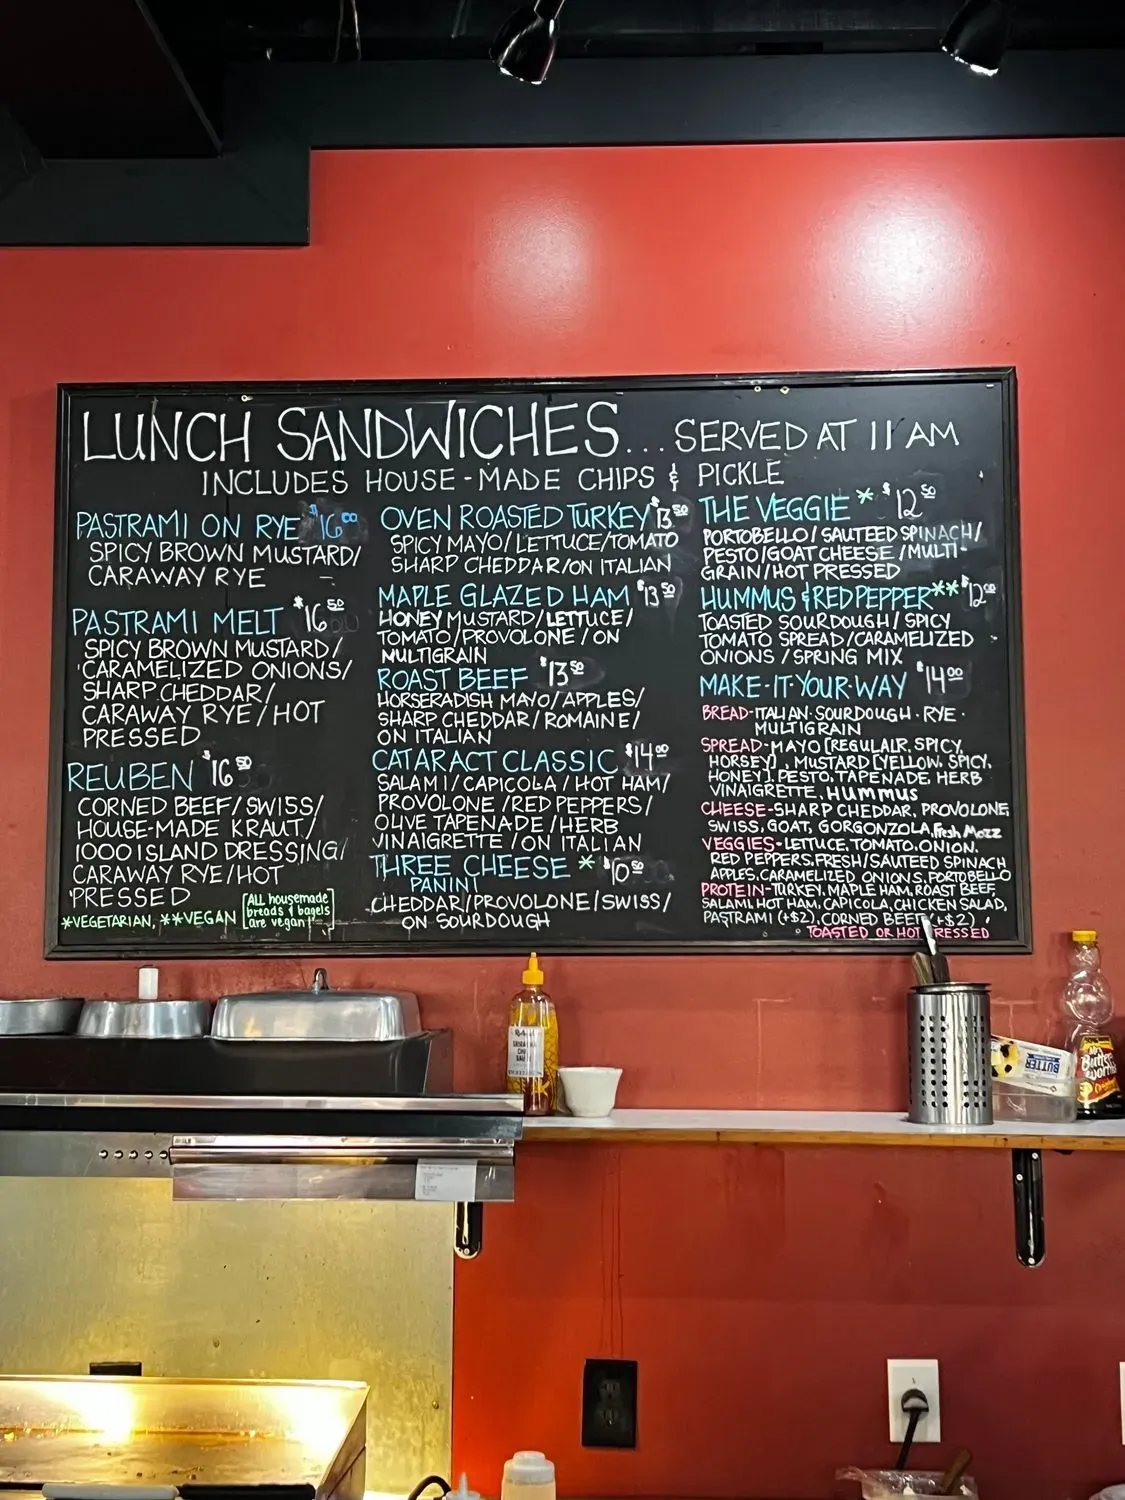 LUNCH SANDWICHES... SERVED AT 11 AM
INCLUDES HOUSE-MADE CHIPS & PICKLE
PASTRAMI ON RYE $16.00
SPICY BROWN MUSTARD/
CARAWAY RYE
PASTRAMI MELT $16.50
SPICY BROWN MUSTARD/
CARAMELIZED ONIONS/
SHARP CHEDDAR/
CARAWAY RYE/HOT
PRESSED
REUBEN $16.50
CORNED BEEF/SWISS/
HOUSE-MADE KRAUT/
1000 ISLAND DRESSING/
CARAWAY RYE/HOT
PRESSED
*VEGETARIAN, **VEGAN
ALL housemade
breads & bagels
are vegan!
OVEN ROASTED TURKEY $13.50
SPICY MAYO/LETTUCE/TOMATO
SHARP CHEDDAR/ON ITALIAN
MAPLE GLAZED HAM $13.50
HONEY MUSTARD/LETTUCE/
TOMATO/PROVOLONE/ON
MULTIGRAIN
ROAST BEEF $13.50
HORSERADISH MAYO/APPLES/
SHARP CHEDDAR/ROMAINE/
ON ITALIAN
CATARACT CLASSIC $14.00
SALAMI/CAPICOLA/HOT HAM/
PROVOLONE/RED PEPPERS/
OLIVE TAPENADE/HERB
VINAIGRETTE/ON ITALIAN
THREE CHEESE * $10.50
PANINI
CHEDDAR/PROVOLONE/SWISS/
ON SOURDOUGH
THE VEGGIE * $12.50
PORTOBELLO/SAUTEED SPINACH/
PESTO/GOAT CHEESE/MULTI-
GRAIN/HOT PRESSED
HUMMUS & RED PEPPER** $12.00
TOASTED SOURDOUGH/SPICY
TOMATO SPREAD/CARAMELIZED
ONIONS/SPRING MIX
MAKE-IT-YOUR-WAY $14.00
BREAD-ITALIAN·SOURDOUGH·RYE·
MULTIGRAIN
SPREAD-MAYO [REGULAIR, SPICY,
HORSEY], MUSTARD [YELLOW, SPICY,
HONEY], PESTO, TAPENADE, HERB
VINAIGRETTE, HUMMUS
CHEESE-SHARP CHEDDAR, PROVOLONE,
SWISS, GOAT, GORGONZOLA, Fresh Mozz
VEGGIES-LETTUCE, TOMATO, ONION,
RED PEPPERS, FRESH/SAUTEED SPINACH
APPLES, CARAMELIZED ONIONS, PORTOBELLO
PROTEIN-TURKEY, MAPLE HAM, ROAST BEEF,
SALAMI, HOT HAM, CAPICOLA, CHICKEN SALAD,
PASTRAMI (+$2), CORNED BEEF (+$2)
TOASTED OR HOT PRESSED
BUTTER
Mrs.
Butter
worth's